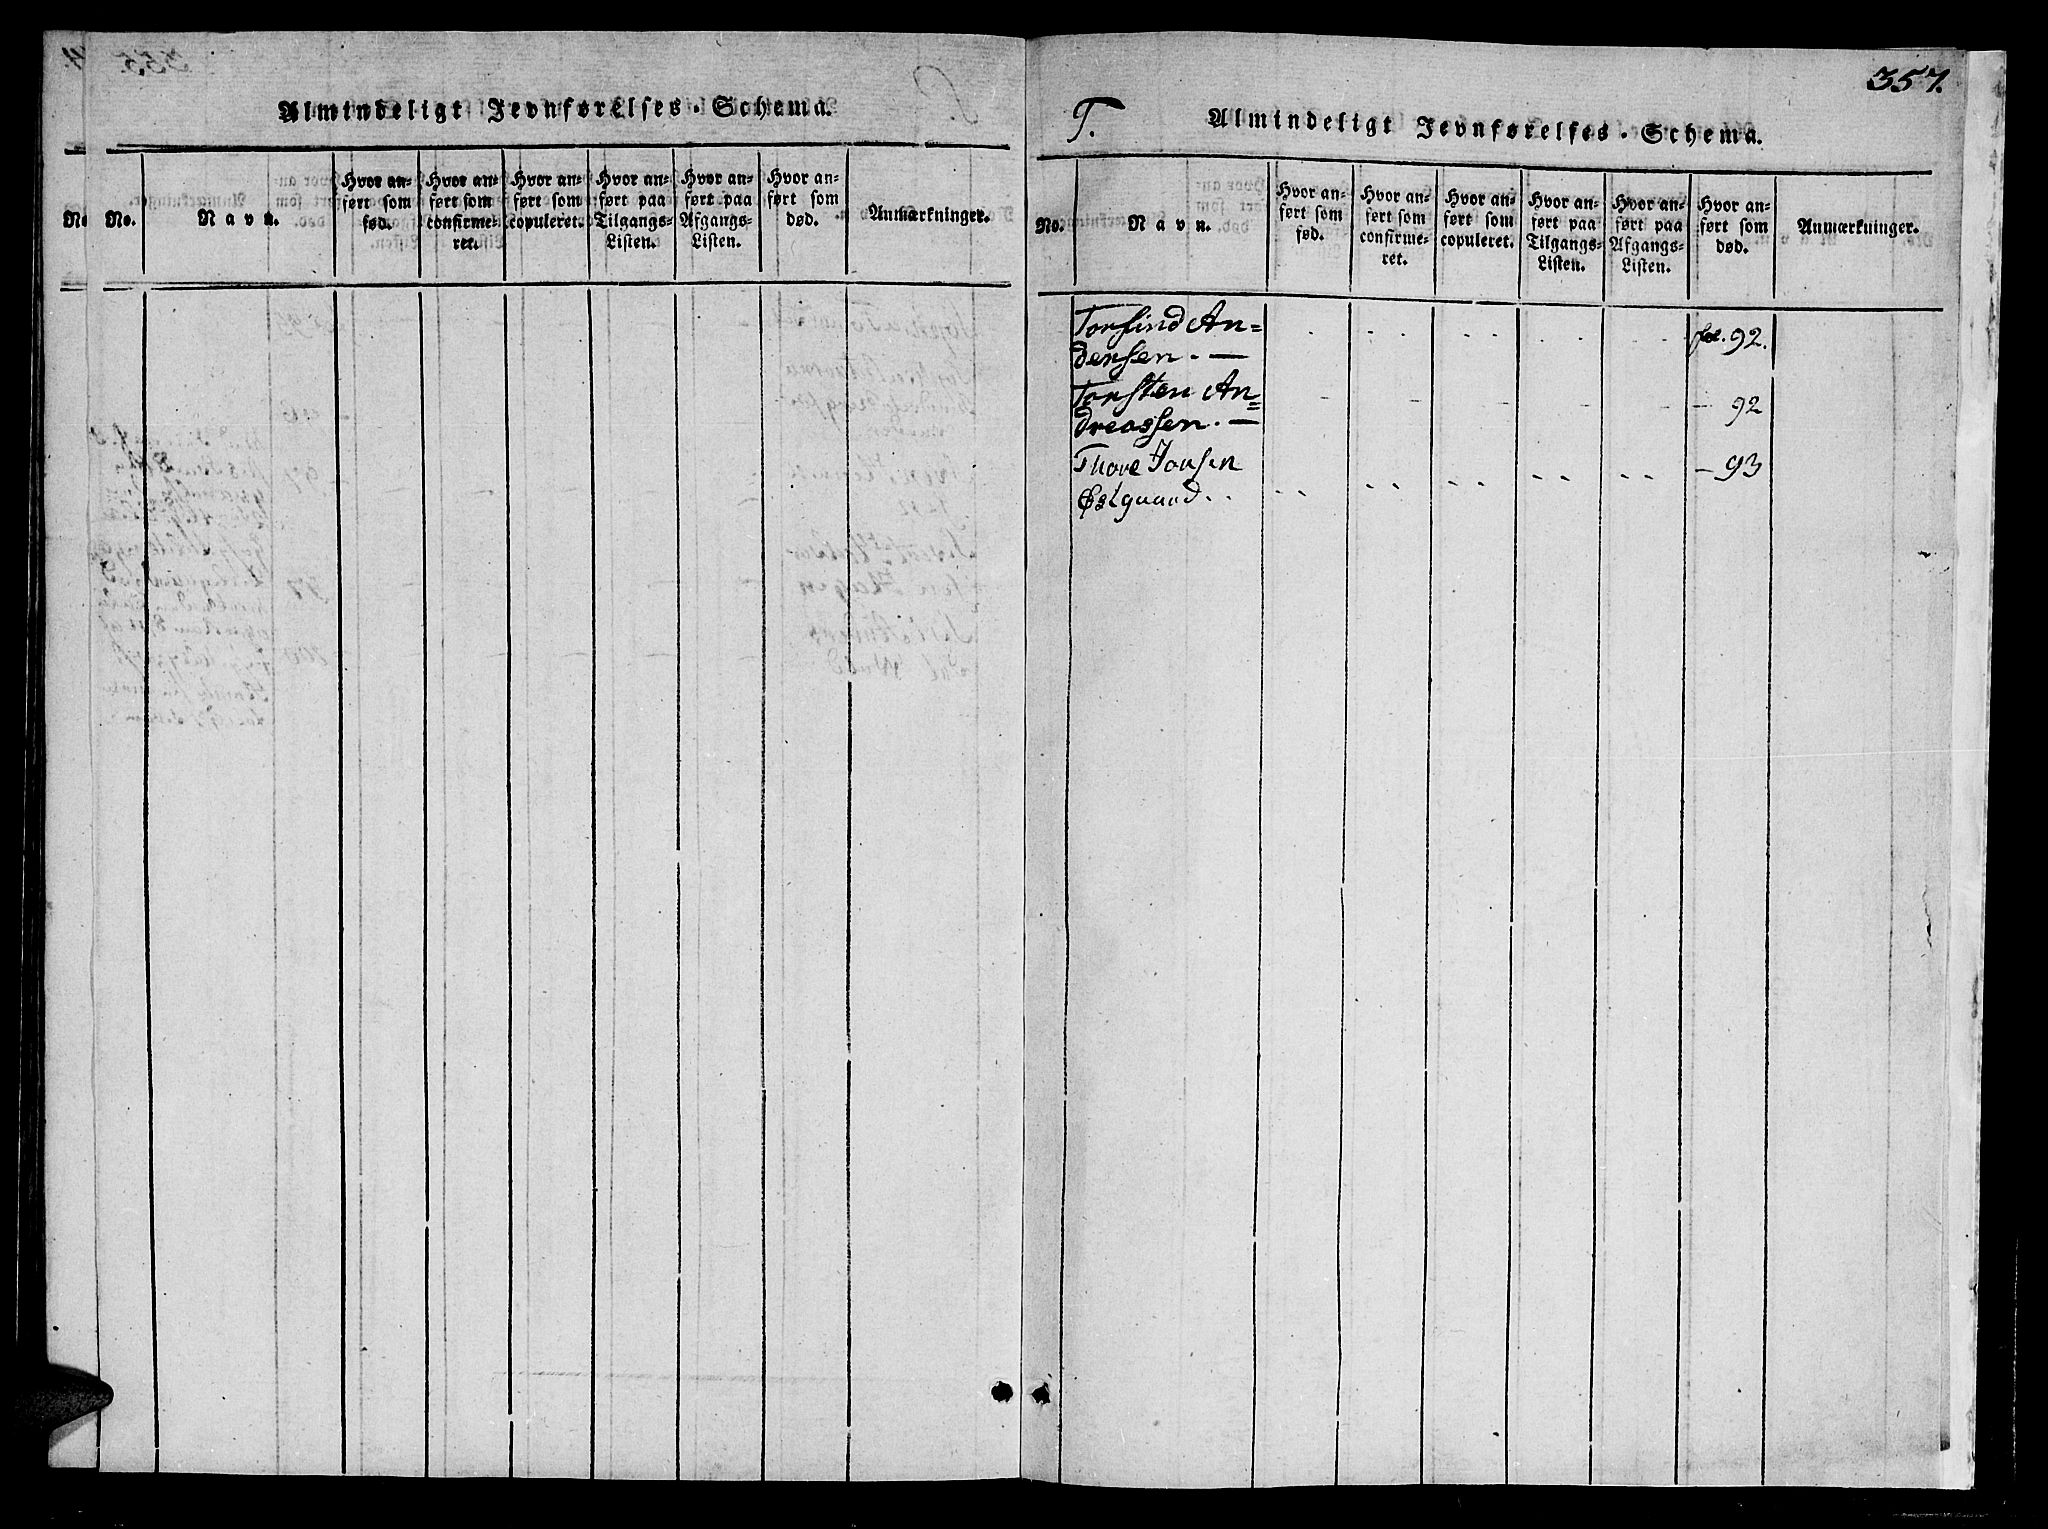 Almindeligt Jevnførelses-Schema.
No.
No.
Navn.
Hvor an-
ført som
fød.
Hvor an-
ført som
confirme-
ret.
Hvor an-
ført som
copuleret.
Hvor an-
ført paa
Tilgangs-
Listen.
Hvor an-
ført paa
Afgangs-
Listen.
Hvor an-
ført som
død.
Anmærkninger.
357.
T.
Almindeligt Jevnførelses-Schema.
No.
Navn.
Hvor an-
ført som
fød.
Hvor an-
ført som
confirme-
ret.
Hvor an-
ført som
copuleret.
Hvor an-
ført paa
Tilgangs-
Listen.
Hvor an-
ført paa
Afgangs-
Listen.
Hvor an-
ført som
død.
Anmærkninger.
Torfind An= fol. 92.
dersen. —
Torsten An= — 92
dreassen. —
Thore Jonsen — 93
Østgaard..